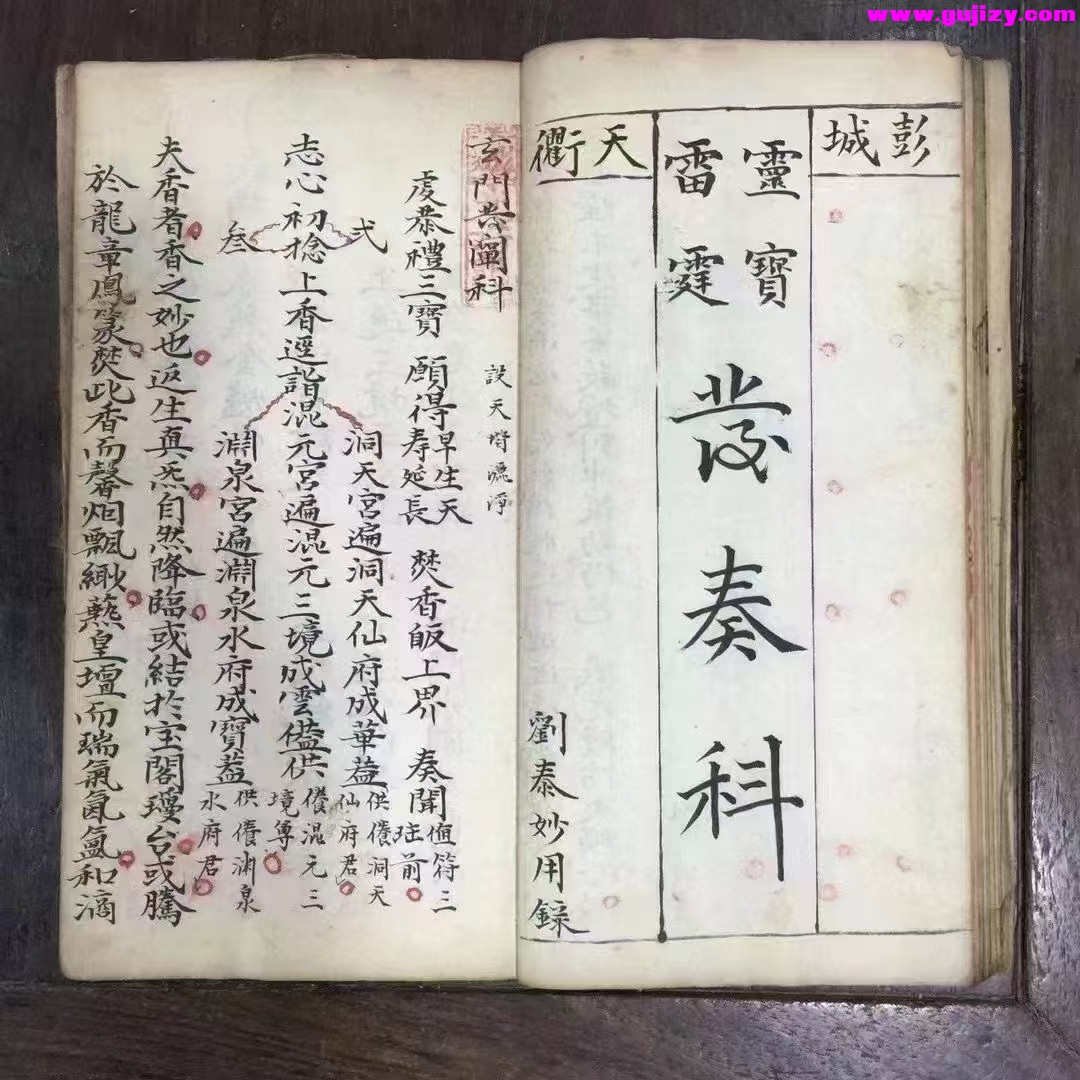 www.gujizy.com
彭城
靈寶
雷霆
發奏科
天衢
劉泰妙用錄
玄門發闡科
設天堦洒淨
虔恭禮三寶 願得早生天寿延長 焚香皈上界 奏聞值符三前
弍 洞天宮遍洞天仙府成華蓋供養洞天仙府君
志心初捻上香逕詣混元宮遍混元三境成雲蓋供養混元三境尊
叁 淵泉宮遍淵泉水府成寶蓋供養渊泉水府君
夫香者香之妙也返生真炁自然降臨或結於宝閣瓊台或騰
於龍章鳳篆焚此香而馨烟飄緲爇皇壇而瑞氣氤氲和滴